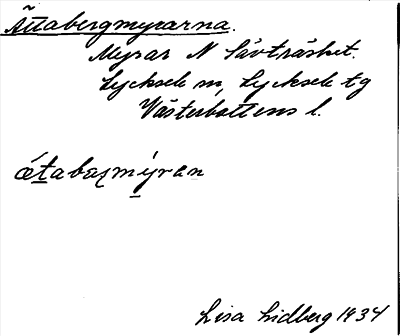 Åttabergmyrarna.
Myrar N Sävträsket.
Lycksele m, Lycksele tg
Västerbottens l.
åtabaʐmýran
Lisa Lidberg 1934